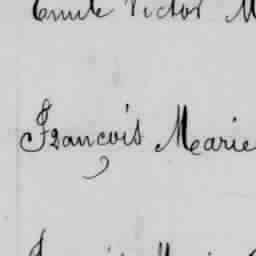 Emile Victor M
François Marie